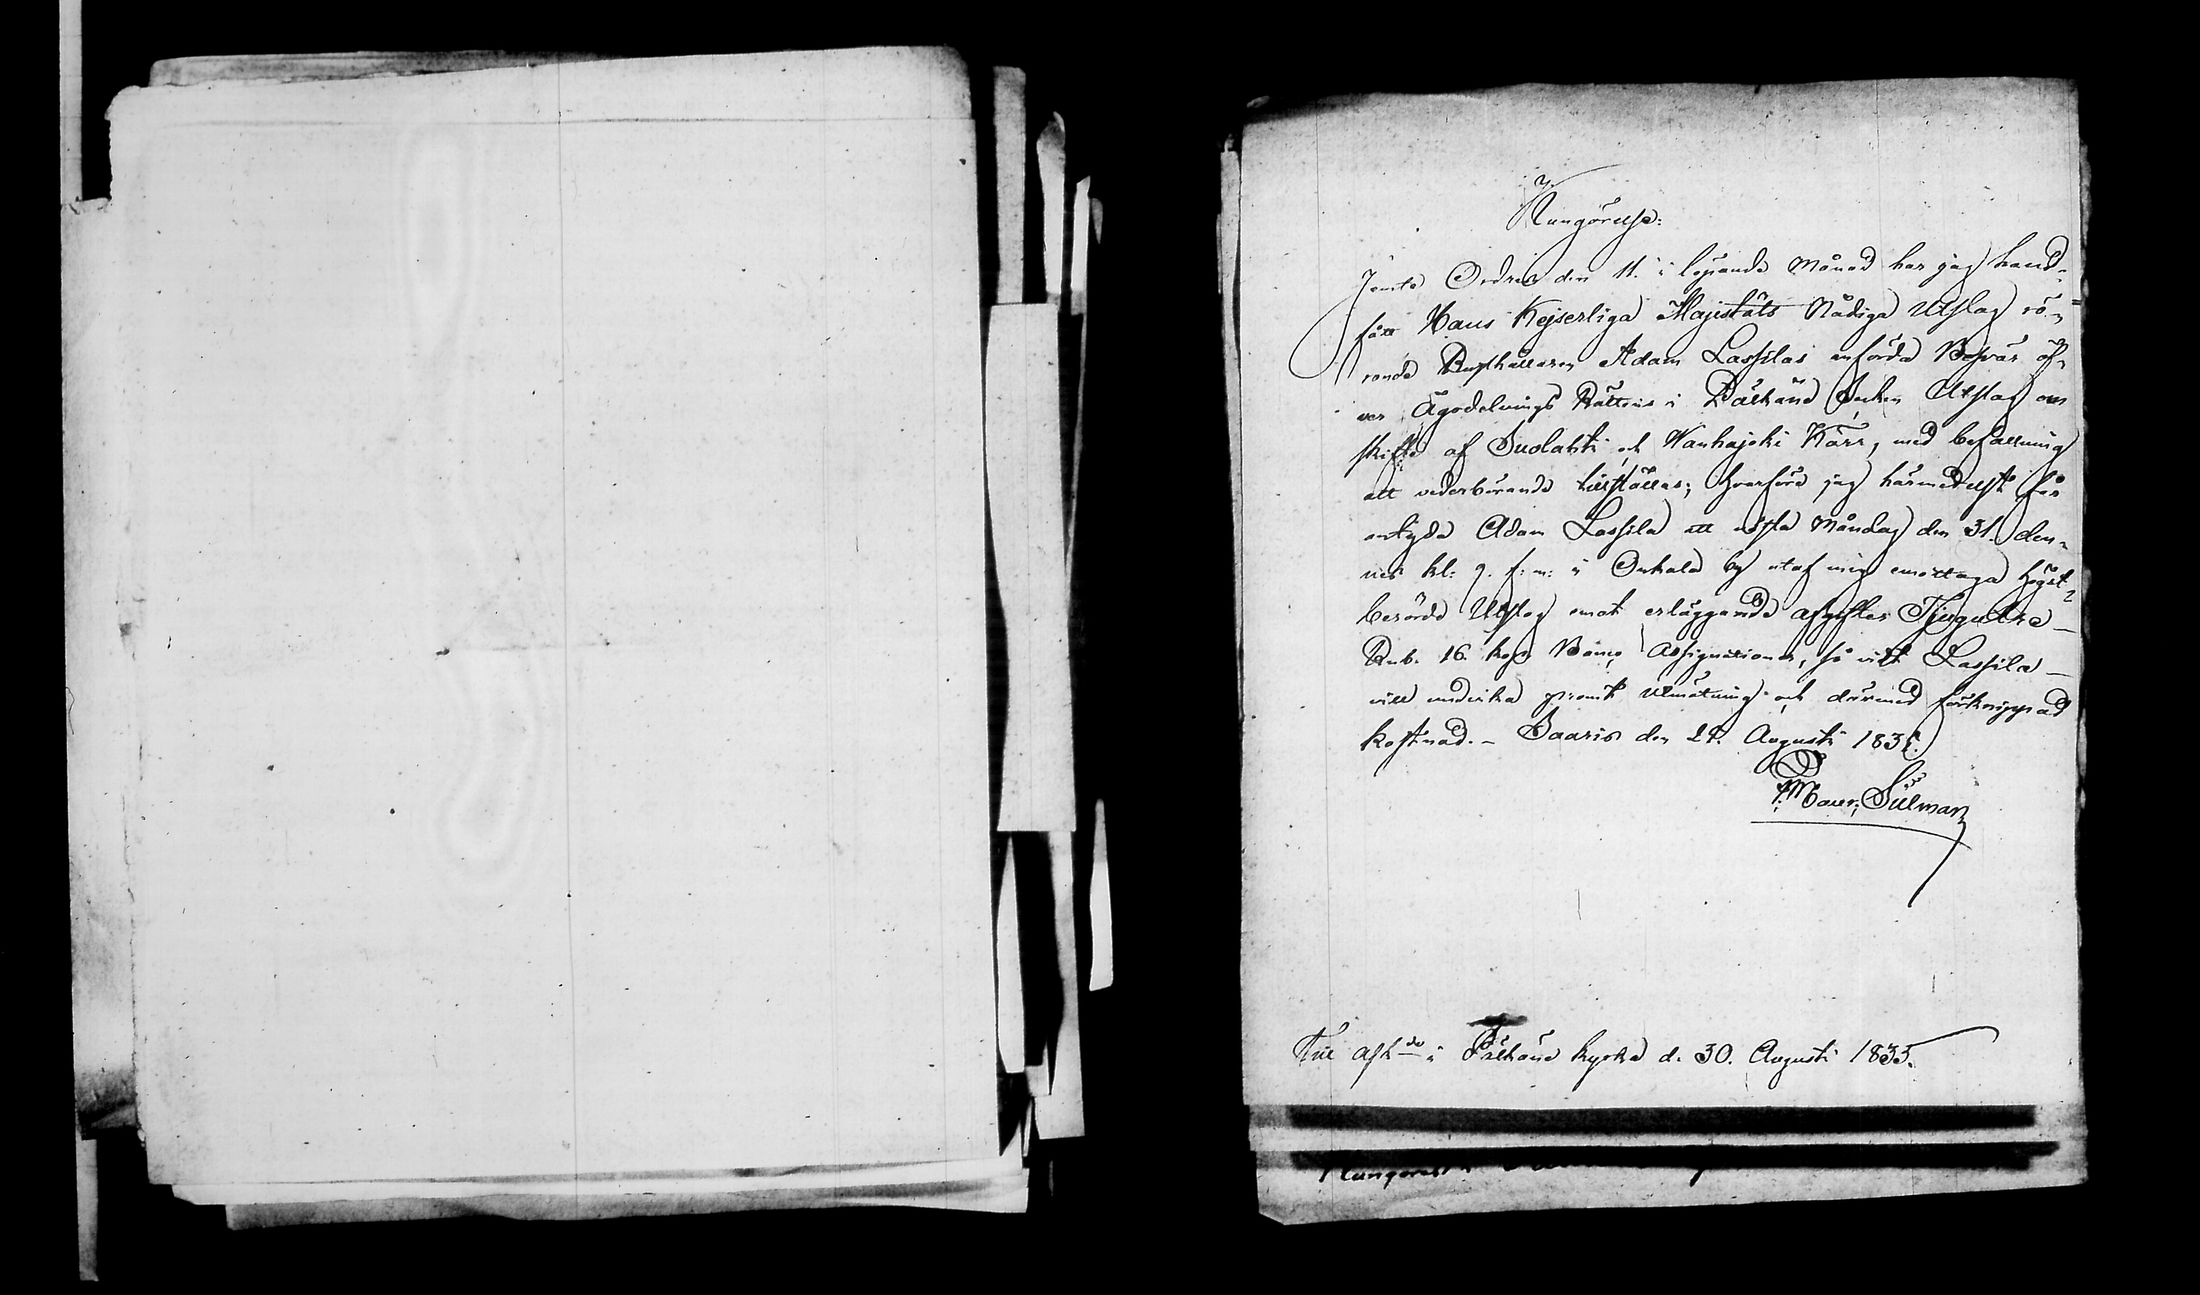 Kungörelse:
Jemte Ordres den 11. i löpande Månad har jag hand-
fått Hans Kejserliga Majestäts Nådiga Utslag rö-
rande Rusthållaren Adam Lassilas anförda Besvär öf-
ver Ägodelnings Rättens i Pälkäne Socken Utslag om
skifte af Suolahti och Wanhajoki Kärr, med befallning
att vederbörande tillställas; hvarföre jag härmedelst får
antyda Adam Lassila att nästa Måndag den 31. den-
nes kl: 9. f: m: i Onkala by utaf mig emottaga högst
berörde Utslag emot erläggande afgifter Tjugutre
Rub. 16. kop. Banco Assignationer, så vidt Lassila
vill undvika promt utmätning och därmed förknippad
kostnad. - Saaris den 24. Augusti 1835.
Silman
i Pälkäne kyrka d. 30. Augusti 1835.
Kungörelse